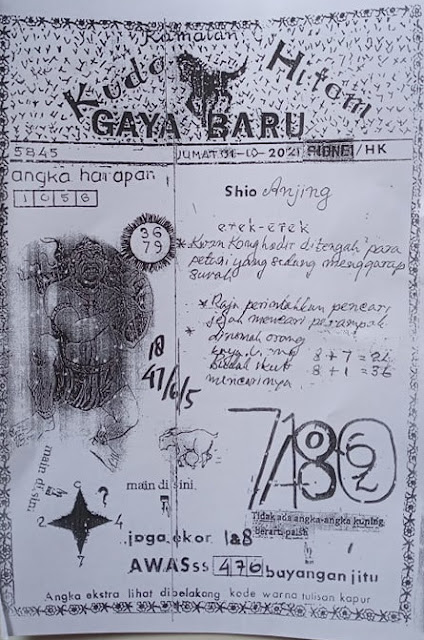 Ramalan
Kuda Hitam
GAYA BARU
5845 JUMAT 01-10-2021 SIDNEI/HK
angka harapan
1 0 5 6
Shio Anjing
36
79
erek-erek
* Kwan Kong hadir ditengah para
petani yang sedang menggarap
sawah
* Raja perintahkan pencari
jejak mencari perampok
dirumah orang
8 + 7 =
8 + 1 = 36
mencarinya
18
47/6/5
7/8
main disini
main disini
?
C
2 4
Tidak ada angka-angka kuning
Berarti palsu
jaga ekor 1&8
AWASss 476 bayangan jitu
Angka ekstra lihat dibelakang kode warna tulisan kapur